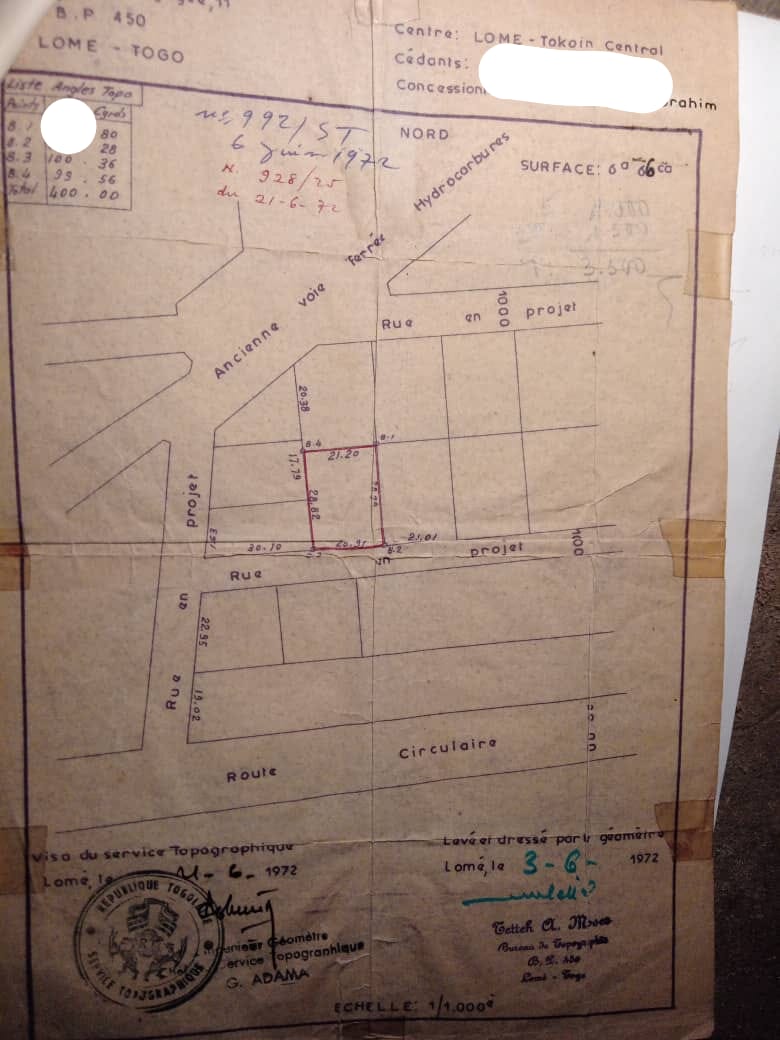 B.P 450
LOME - TOGO
Centre: LOME - Tokoin Central
Cédants:
Concession
brahim
Liste Angles Topo
Points Cgrds
B.1 80
B.2 28
B.3 100.36
B.4 99.56
Total 400.00
N° 992/ST
6 Juin 1972
N. 928/25
du 21-6-72
NORD
SURFACE: 6a 66ca
Ancienne voie ferrée Hydrocarbures
Rue en projet
1000
20.38
B.4
B.1
21.20
17.79
28.82
projet
30.10
20.91
B.2
21.01
projet
1100
Rue
en
22.95
Rue
19.02
Route Circulaire
Visa du service Topographique
Lomé, le 21-6-1972
REPUBLIQUE TOGOLAISE
SERVICE TOPOGRAPHIQUE
Ingénieur Géomètre
Service Topographique
G. ADAMA
Levé et dressé par le géomètre
Lomé, le 3-6-1972
Tetteh A. Moses
Bureau de Topographie
B.P. 450
Lomé - Togo
ECHELLE: 1/1.000è